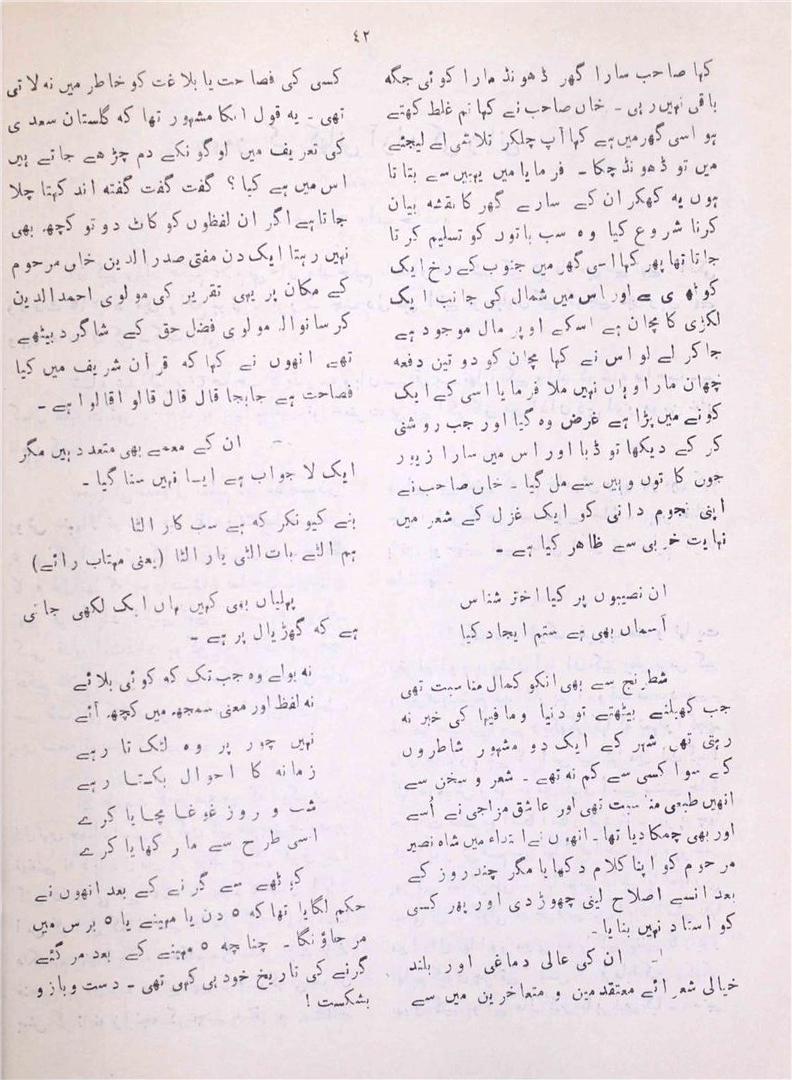 ٤٢
کہا صاحب سارا گھر ڈھونڈ مارا کوئی جگہ
باقی نہیں رہی ۔ خاں صاحب نے کہا تم غلط کہتے
ہو اسی گھر میں ہے کہا آپ چلکر تلاشی لے لیجئے
میں تو ڈھونڈ چکا ۔ فرمایا میں یہیں سے بتاتا
ہوں یہ کہکر ان کے سارے گھر کا نقشہ بیان
کرنا شروع کیا وہ سب باتوں کو تسلیم کرتا
جاتا تھا پھر کہا اسی گھر میں جنوب کے رخ ایک
کوٹھری ہے اور اس میں شمال کی جانب ایک
لکڑی کا مچان ہے اسکے اوپر مال موجود ہے
جا کر لے لو اس نے کہا مچان کو دو تین دفعہ
چھان مارا وہاں نہیں ملا فرمایا اسی کے ایک
کونے میں پڑا ہے غرض وہ گیا اور جب روشنی
کر کے دیکھا تو ڈبا اور اس میں سارا زیور
جوں کا توں وہیں سے مل گیا ۔ خاں صاحب نے
اپنی نجوم دانی کو ایک غزل کے شعر میں
نہایت خوبی سے ظاہر کیا ہے ۔
ان نصیبوں پر کیا اختر شناس
آسماں بھی ہے ستم ایجاد کیا
شطرنج سے بھی انکو کمال مناسبت تھی
جب کھیلنے بیٹھتے تو دنیا و مافیہا کی خبر نہ
رہتی تھی شہر کے ایک دو مشہور شاطروں
کے سوا کسی سے کم نہ تھے ۔ شعر و سخن سے
انھیں طبعی مناسبت تھی اور عاشق مزاجی نے اُسے
اور بھی چمکا دیا تھا۔ انھوں نے ابتداء میں شاہ نصیر
مرحوم کو اپنا کلام دکھایا مگر چند روز کے
بعد انسے اصلاح لینی چھوڑ دی اور پھر کسی
کو استاد نہیں بنایا۔
ان کی عالی دماغی اور بلند
خیالی شعرائے متقدمین و متاخرین میں سے
کسی کی فصاحت یا بلاغت کو خاطر میں نہ لاتی
تھی ۔ یہ قول انکا مشہور تھا کہ گلستان سعدی
کی تعریف میں لوگوں کے دم چڑھے جاتے ہیں
اس میں ہے کیا؟ گفت گفت گفتہ اند کہتا چلا
جاتا ہے اگر ان لفظوں کو کاٹ دو تو کچھ بھی
نہیں رہتا ایک دن مفتی صدر الدین خاں مرحوم
کے مکان پر یہی تقریر کی مولوی احمد الدین
کرسانوالہ مولوی فضل حق کے شاگرد بیٹھے
تھے انھوں نے کہا کہ قرآن شریف میں کیا
فصاحت ہے جابجا قال قال قالوا قالوا ہے ۔
ان کے معمے بھی متعدد ہیں مگر
ایک لا جواب ہے ایسا نہیں سنا گیا ۔
بنے کیونکر کہ ہے سب کار الٹا
ہم الٹے بات الٹی یار الٹا (یعنی مہتاب رائے)
پہلیاں بھی کہیں یہاں ایک لکھی جاتی
ہے کہ گھڑیال پر ہے ۔
نہ بولے وہ جب تک کہ کوئی بلائے
نہ لفظ اور معنی سمجھ میں کچھ آئے
نہیں چور پر وہ لٹکتا رہے
زمانہ کا احوال بکتا رہے
شب و روز غوغا مچایا کرے
اسی طرح سے مار کھایا کرے
کوٹھے سے گرنے کے بعد انھوں نے
حکم لگایا تھا کہ ٥ دن یا مہینے یا ٥ برس میں
مر جاؤنگا ۔ چنانچہ ٥ مہینے کے بعد مر گئے
گرنے کی تاریخ خود ہی کہی تھی ۔ دست و بازو
بشکست !